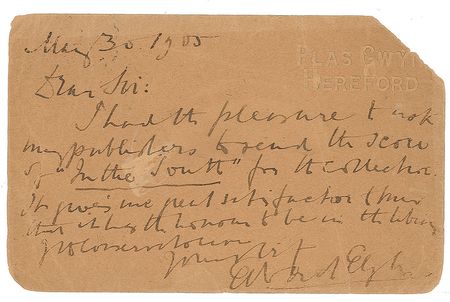 May 30. 1905
PLAS GWYN
HEREFORD
Dear Sir:
I had the pleasure to ask
my publishers to send the score
of "In the South" for the collection.
It gives me great satisfaction
that it has the honour to be in the library
of the Conservatoire
Edward Elgar